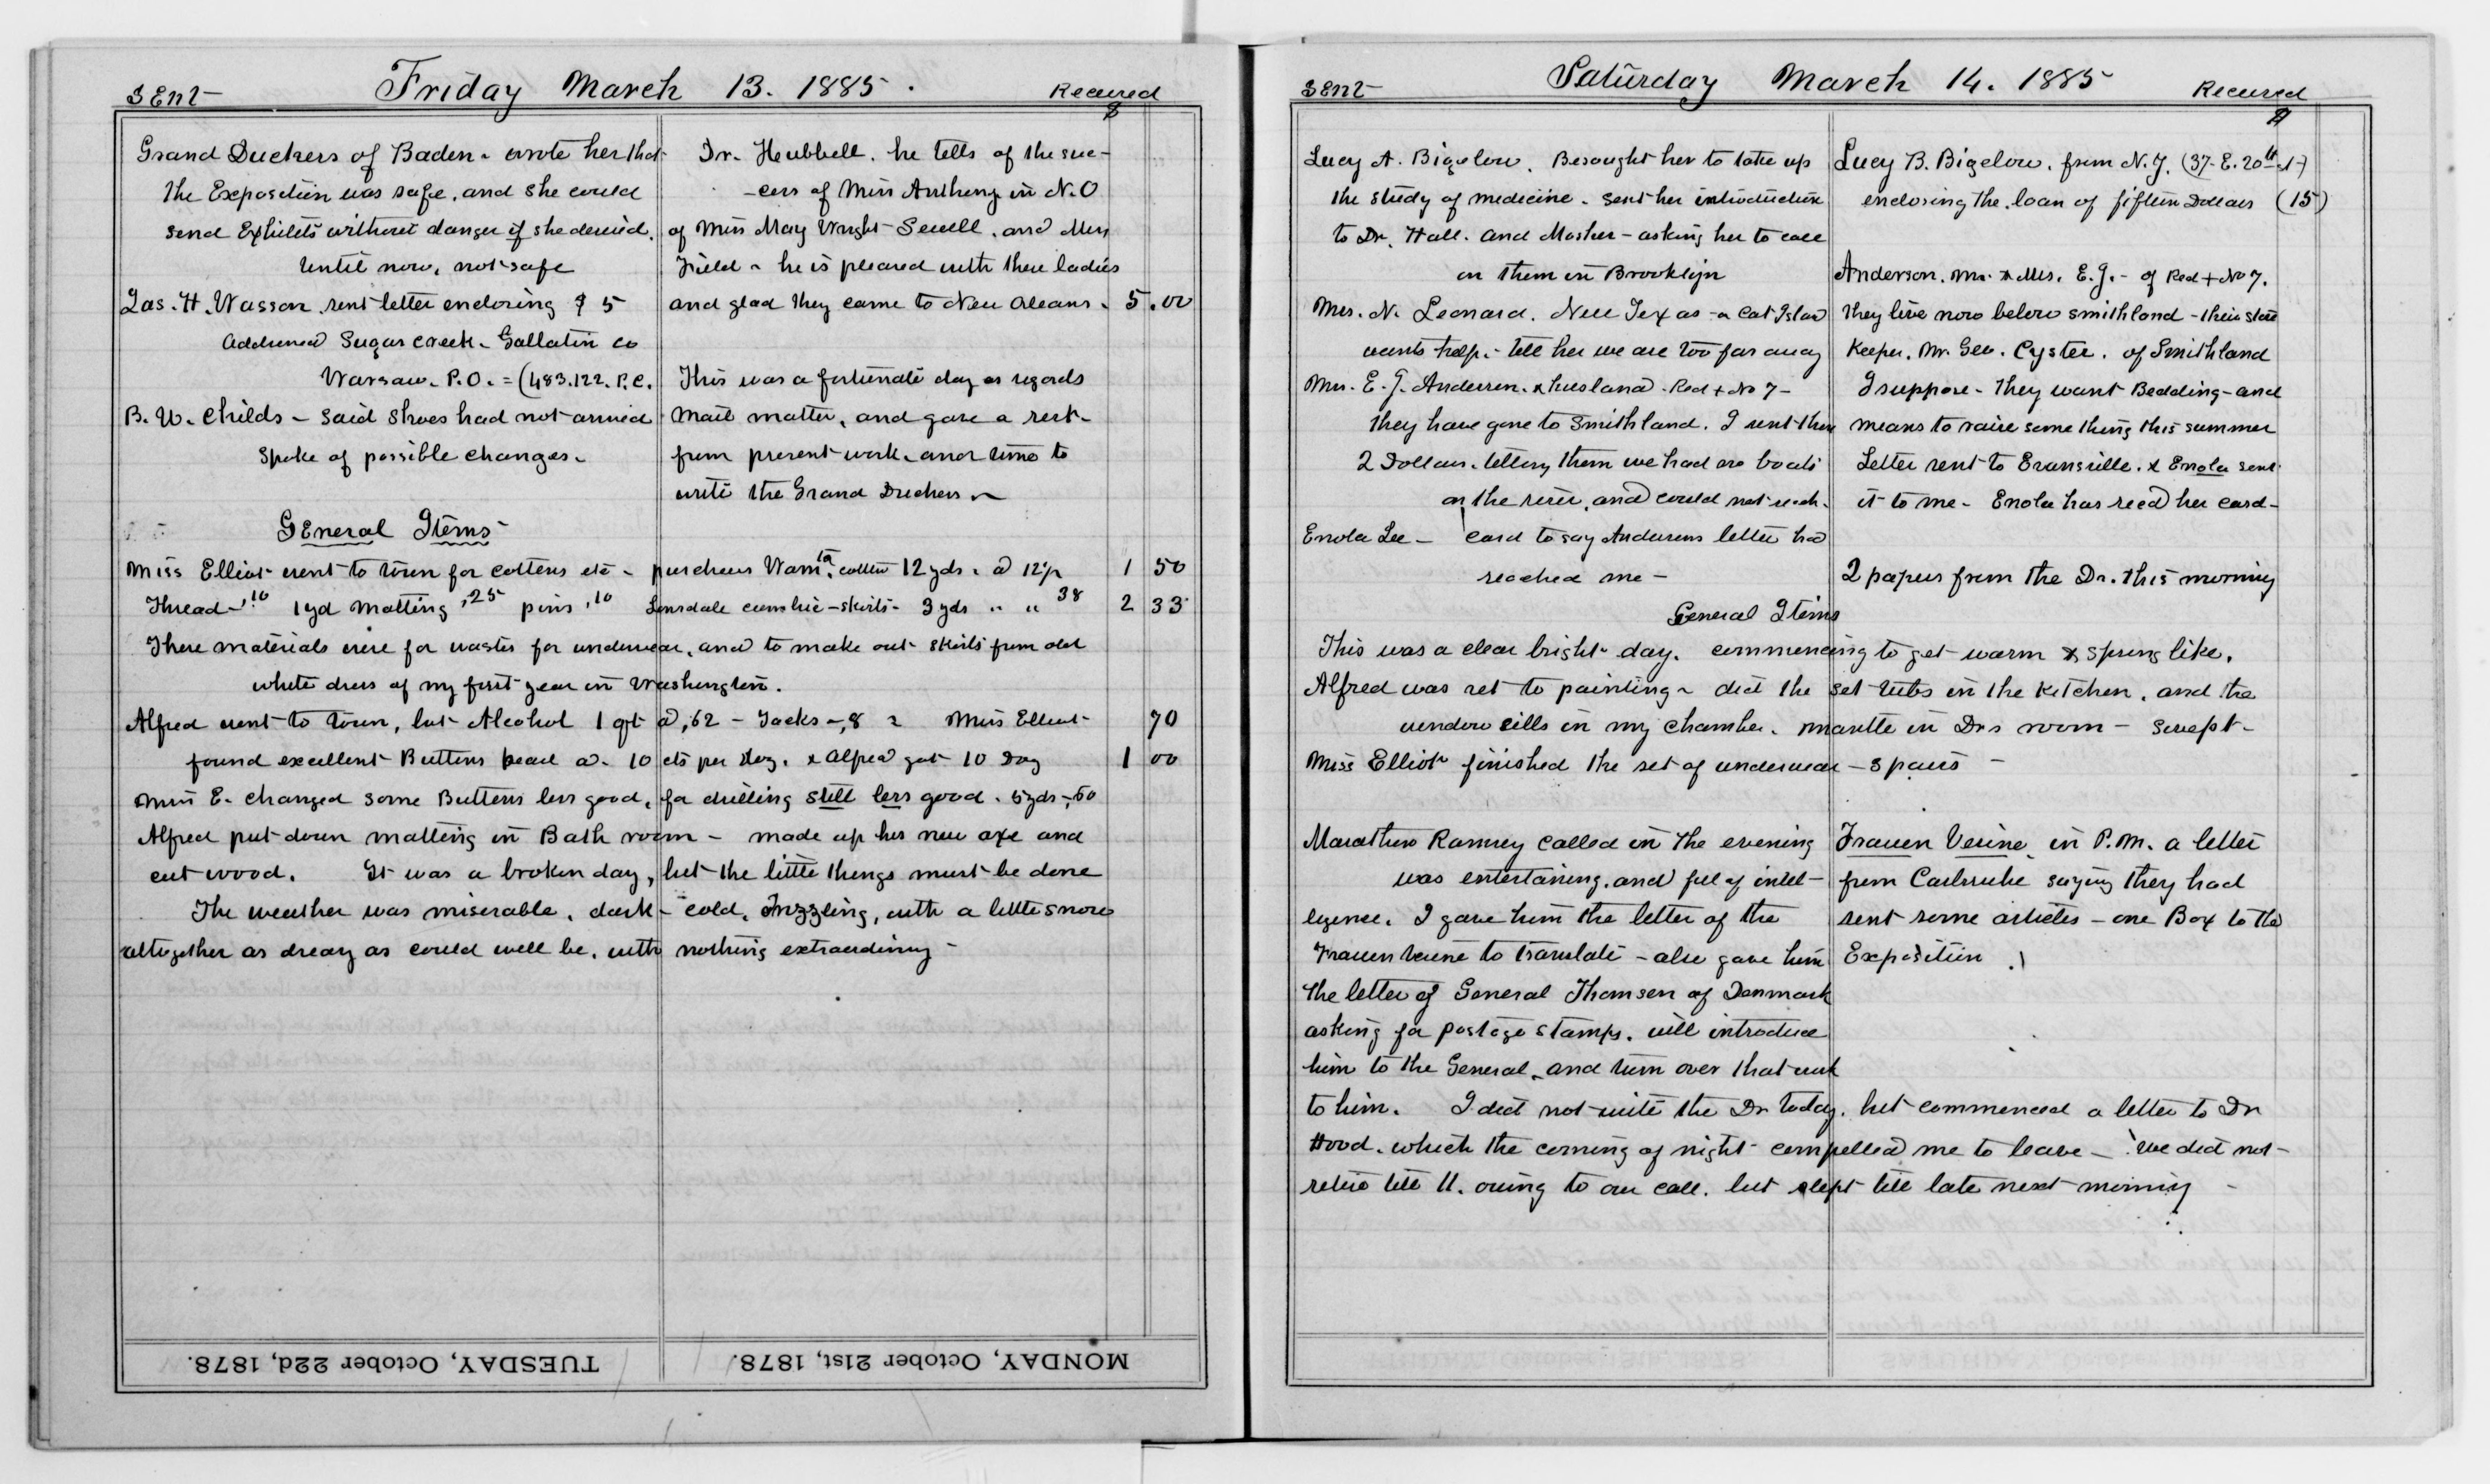 SENT Friday March 13. 1885. Received
$
Grand Duchess of Baden - wrote her that
the Exposition was safe, and she could
send Exhibits without danger if she desired.
Until now, not safe
Jas. H. Wasson sent letter enclosing $ 5
Addressed Sugar Creek - Gallatin co
Warsaw. P.O. = (483.122. P.C.
B. W. Childs - said Shoes had not arrived
Spoke of possible changes -
Dr. Hubbell. he tells of the suc-
-cess of Miss Anthony in N.O
of Miss May Wright Sewell, and Mrs
Field - he is pleased with these ladies
and glad they came to New Orleans - 5.00
This was a fortunate day as regards
mail matter, and gave a rest
from present work and time to
write the Grand Duchess -
General Items
Miss Elliot went to town for cottons etc - purchases Wamta. cotton 12 yds. @ 12½ 1 50
Thread - .10 1 yd Matting .25 pins .10 Lonsdale cambric - skirts - 3 yds " " 38 2 33
These materials were for wastes for underwear, and to make out skirts from old
white dress of my first year in Washington.
Alfred went to town, but Alcohol 1 qt @ .62 - Tacks - .8 - Miss Elliot 70
found excellent Buttons pearl @ 10 cts per Doz. & Alfred got 10 Doz 1 00
Miss E. changed some Buttons less good, for drilling still less good. 5 yds - .50
Alfred put down matting in Bath room - made up his new axe and
cut wood. It was a broken day, but the little things must be done
The weather was miserable, dark - cold, drizzling, with a little snow
altogether as dreary as could well be, with nothing extraordinary -
TUESDAY, October 22d, 1878.
MONDAY, October 21st, 1878.
SENT Saturday March 14. 1885 Received
$
Lucy A. Bigelow. Besought her to take up
the study of medicine - sent her introduction
to Dr. Hall. and Mosher - asking her to call
on them in Brooklyn
Mrs. N. Leonard. New Texas - a Cat Island
wants help - tell her we are too far away
Mrs. E. J. Anderson. & husband - Red + No 7 -
they have gone to Smithland. I sent them
2 Dollars. telling them we had no boats
on the river, and could not reach -
Enola Lee - card to say Andersons letter had
reached me -
Lucy B. Bigelow. from N.Y. (37-E. 20th st)
enclosing the loan of fifteen Dollars (15)
Anderson. Mr. & Mrs. E. J. - of Red + No 7.
They live now below Smithland - their store
keeper, Mr. Geo. Cyster. of Smithland
I suppose - they want Bedding - and
means to raise something this summer
Letter sent to Evansville. & Enola sent
it to me - Enola has recd her card -
2 papers from the Dr. this morning
General Items
This was a clear bright day. commencing to get warm & spring like.
Alfred was set to painting - did the set tubs in the kitchen, and the
window sills in my chamber. mantle in Drs room - swept -
Miss Elliot finished the set of underwear - 3 pairs -
Marathon Ramsey called in the evening
was entertaining, and full of intel-
ligence. I gave him the letter of the
Frauen Verine to translate - also gave him
the letter of General Thomsen of Denmark
asking for postage stamps. will introduce
him to the General, and turn over that work
Frauen Verine in P.M. a letter
from Carlsruhe saying they had
sent some articles - one Box to the
Exposition !
to him. I did not write the Dr today. but commenced a letter to Dr
Hood. which the coming of night compelled me to leave - We did not
retire till 11. owing to our call. but slept till late next morning -